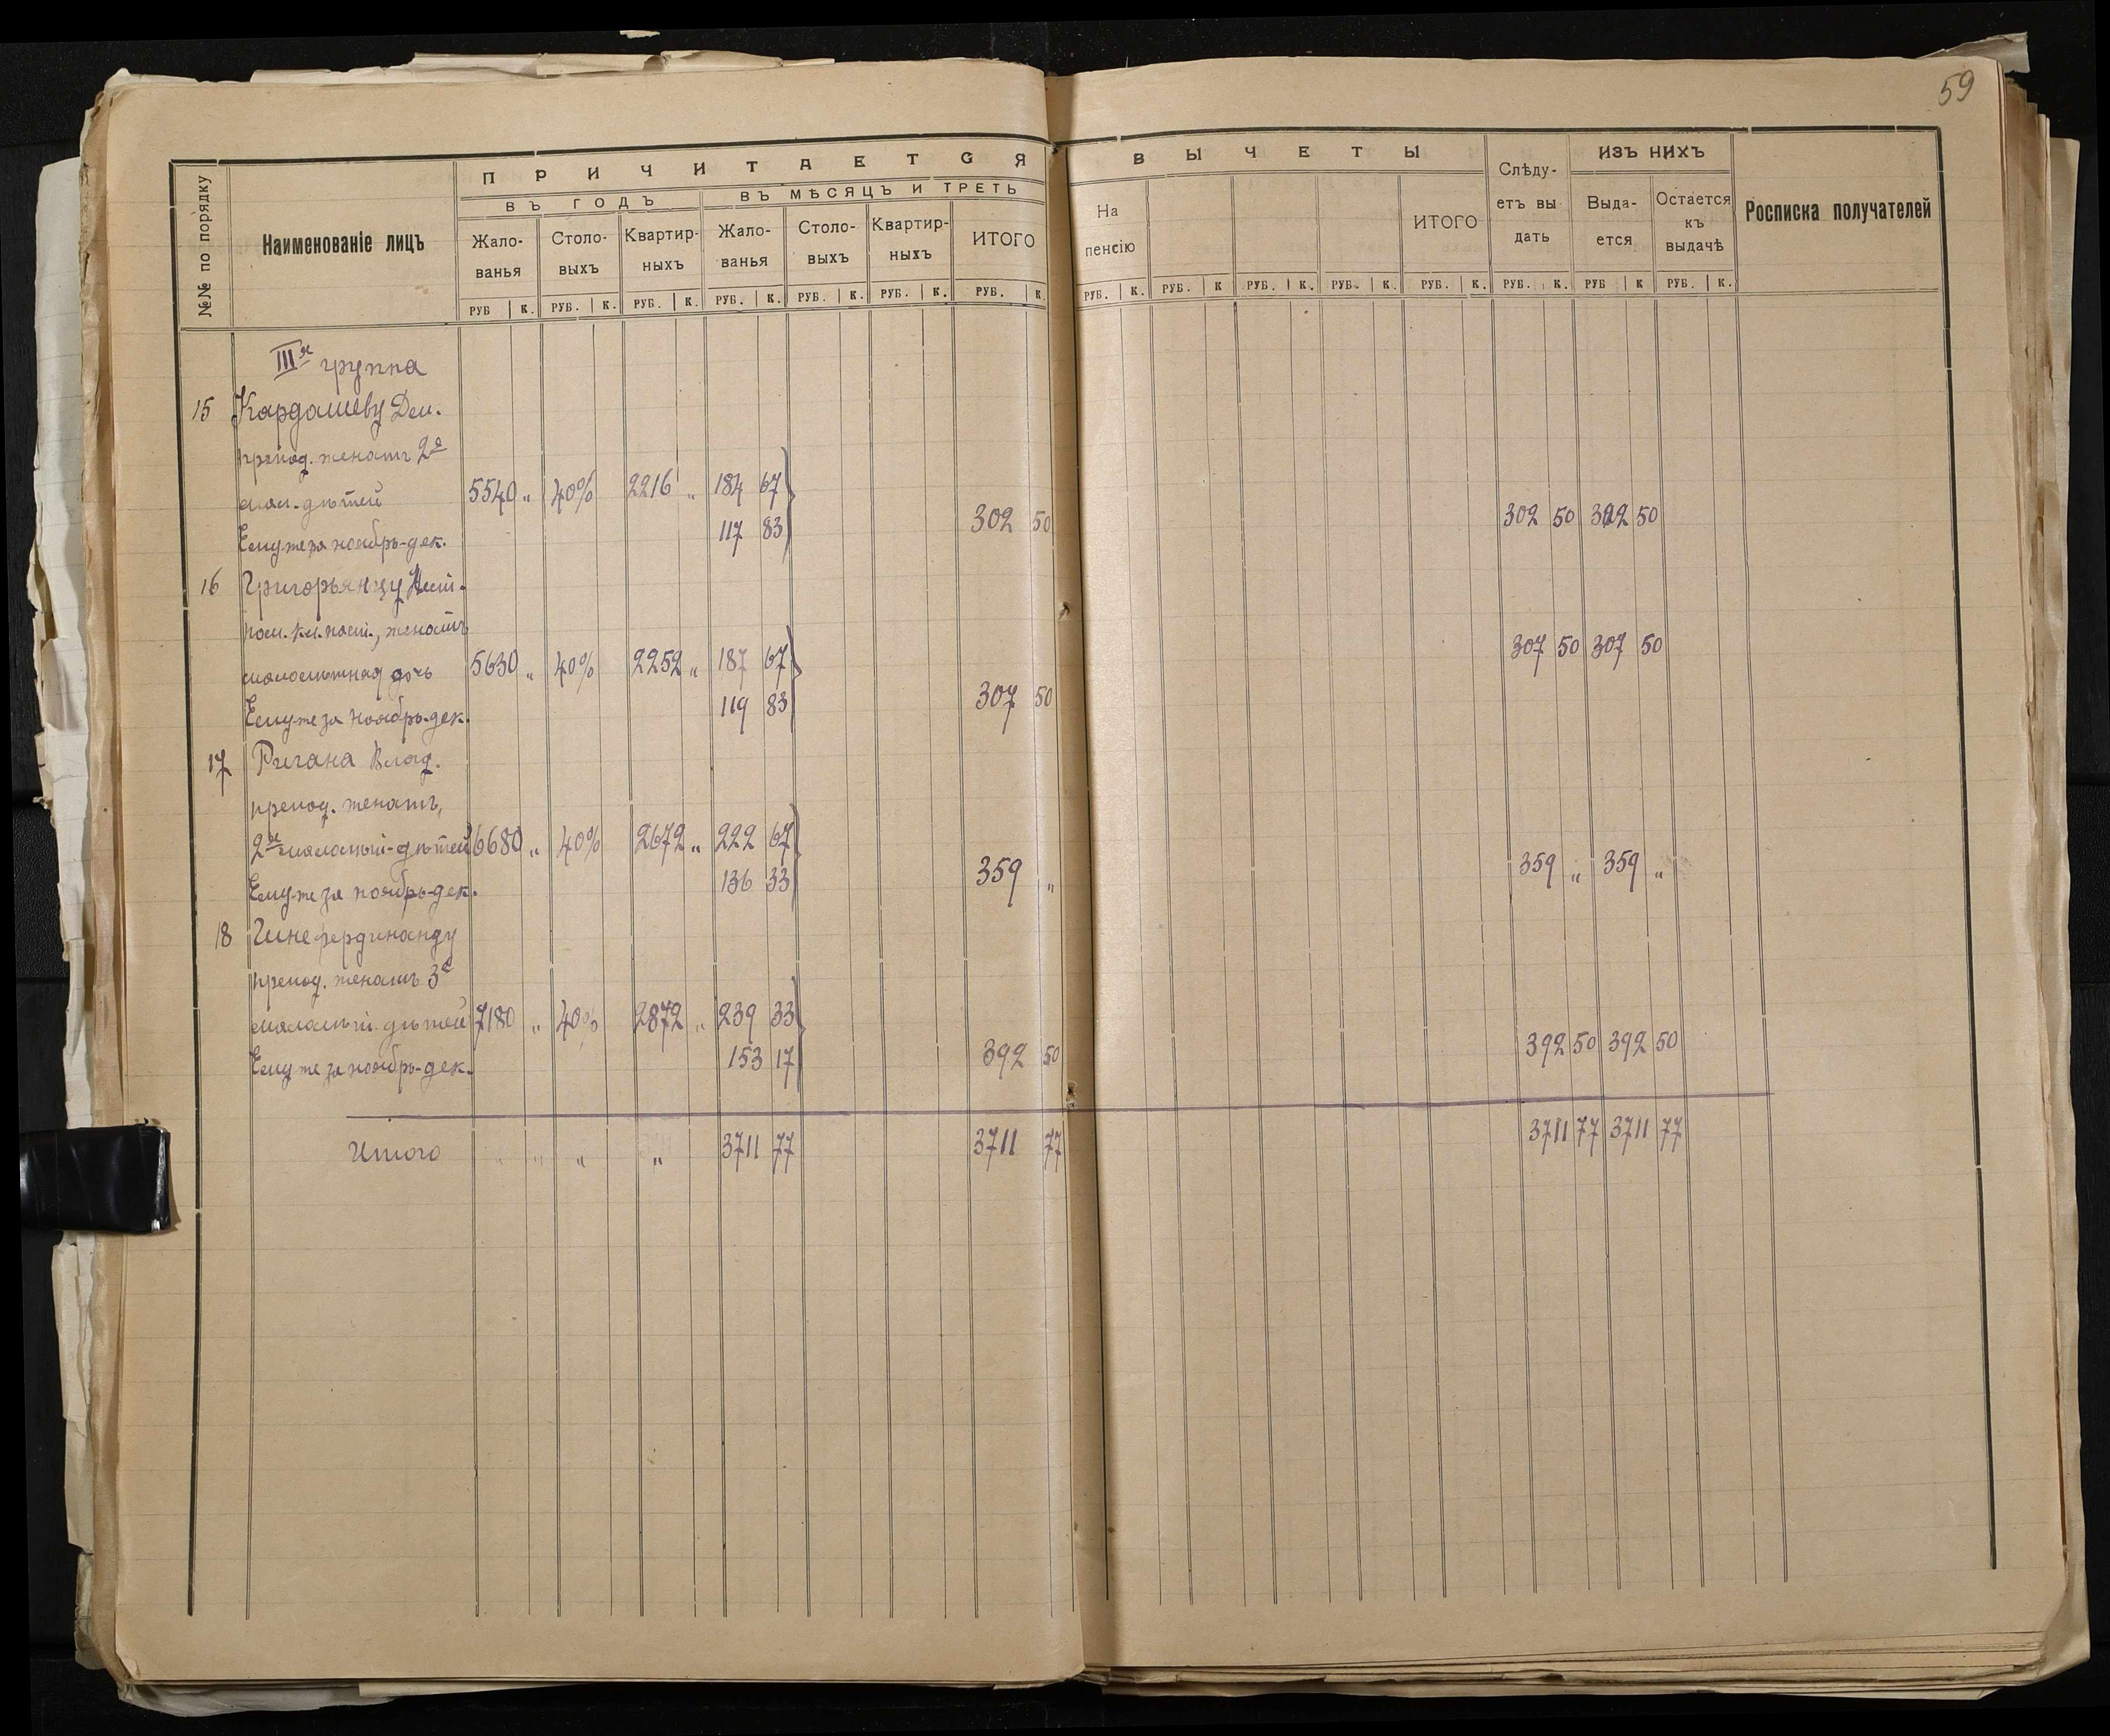 59
№№ по порядку
Наименованіе лицъ
ПРИЧИТАЕТСЯ
ВЪ ГОДЪ
ВЪ МѢСЯЦЪ И ТРЕТЬ
Жало-
ванья
Столо-
выхъ
Квартир-
ныхъ
Жало-
ванья
Столо-
выхъ
Квартир-
ныхъ
ИТОГО
РУБ К. РУБ. К. РУБ. К. РУБ. К. РУБ. К. РУБ. К. РУБ. К.
ВЫЧЕТЫ
На
пенсію
ИТОГО
Слѣду-
етъ вы
дать
ИЗЪ НИХЪ
Выда-
ется
Остается
къ
выдачѣ
Росписка получателей
РУБ. К. РУБ. К РУБ. К. РУБ. К. РУБ. К. РУБ. К. РУБ К РУБ. К.
IIIя группа
15 Кардашеву Дем.
препод. женатъ 2е
мал. дѣтей 5540 „ 40% 2216 „ 184 67
302 50 302 50 302 50
Ему же за ноябрь-дек. 117 83
16 Григорьянцу
женатъ
малолѣтняя дочь 5630 „ 40% 2252 „ 187 67
307 50 307 50
Ему же за ноябрь-дек. 119 83 307 50
17 Ригана Влад.
препод. женатъ,
2е малолѣт-дѣтей 6680 „ 40% 2672 „ 222 67
Ему же за ноябрь-дек. 136 33 359 „ 359 „ 359 „
18 Гине Фердинанду
препод. женатъ 3е
малолѣт. дѣтей 7180 „ 40% 2872 „ 239 33
Ему же за ноябрь-дек. 153 17 392 50 392 50 392 50
Итого „ „ „ „ 3711 77 3711 77 3711 77 3711 77